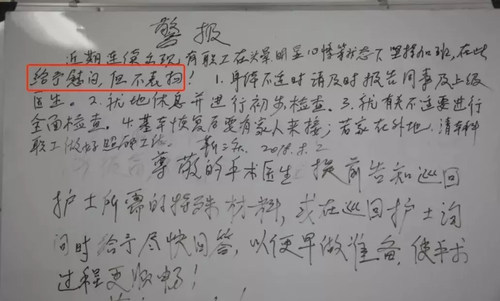 警报
近期连续出现有职工在头晕明显心悸等状态下坚持加班,在此
给予慰问,但不表扬! 1.身体不适时请及时报告同事及上级
医生。2.就地休息并进行初步检查。3.如有不适要进行
全面检查。4.基本恢复后要有家人来接;若家在外地,请本科
职工做好照顾工作。 2018.
尊敬的手术医生提前告知巡回
护士所需的特殊材料,或在巡回护士询
问时给予尽快回答,以便早做准备,使手术
过程更顺畅!